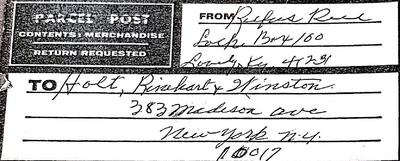 PARCEL POST
CONTENTS: MERCHANDISE
RETURN REQUESTED
FROM Rufus Reed
Lock Box 160
Lovely, Ky 41231
TO Holt, Rinehart & Winston
383 Madison ave
New York N.Y.
10017